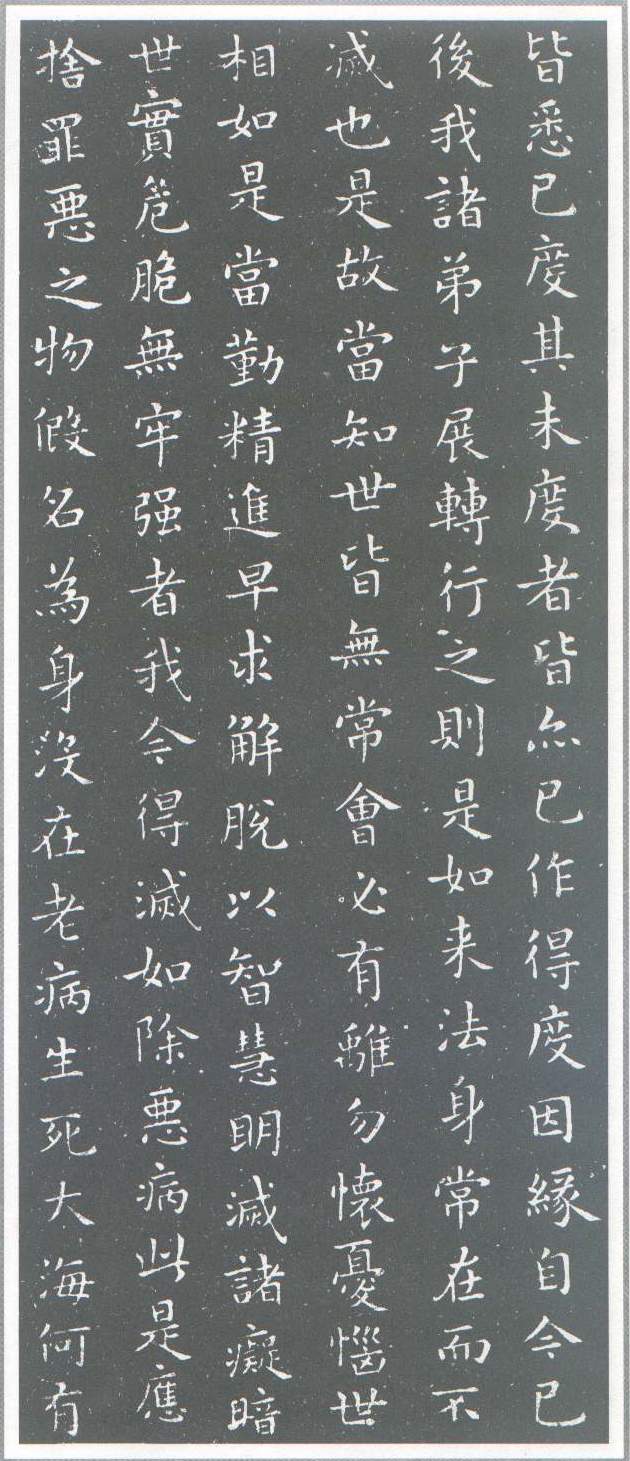 皆悉已度其未度者皆亦已作得度因緣自今已
後我諸弟子展轉行之則是如来法身常在而不
滅也是故當知世皆無常會必有離勿懷憂惱世
相如是當勤精進早求解脫以智慧明滅諸癡暗
世實危脆無牢强者我今得滅如除惡病此是應
捨罪惡之物假名為身沒在老病生死大海何有